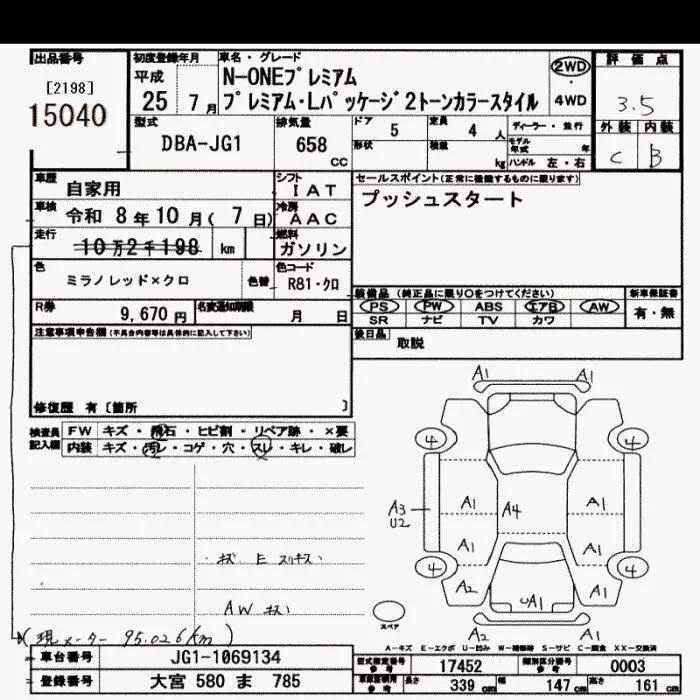 出品番号
[2198]
15040
初度登録年月
平成
25 7月
車名・グレード
N-ONEプレミアム
プレミアム・Lパッケージ2トーンカラースタイル
2WD
・
4WD
評価点
3.5
外装 内装
C B
型式
DBA-JG1
排気量
658
cc
ドア 5
定員 4 人
形状
積載 kg
ディーラー・並行
モデル年式 年
ハンドル 左・右
車歴 自家用
シフト
IAT
車検 令和 8年10月(7日)
冷房
AAC
走行 10万2千198 km
燃料
ガソリン
色
ミラノレッド×クロ
色替
色コード
R81・クロ
R券 9,670円
名変通知期限 月 日
セールスポイント(正常に機能するものに限ります)
プッシュスタート
装備品(純正品に限り○をつけてください)
PS PW ABS エアB AW
SR ナビ TV カワ
新車保証書
有・無
後日品 取説
注意事項申告欄(不具合内容等は具体的に記入して下さい)
修復歴 有〔箇所 〕
検査員記入欄
FW キズ・飛石・ヒビ割・リペア跡・×要
内装 キズ・汚レ・コゲ・穴・スレ・キレ・破レ
AW キズ
(現メーター 95,026km)
A1 A1
4 4
A3
U2
A1 A4 A1
A1 A1
4 4
A2 UA1 A1
A2 A1
スペア
A-キズ E-エクボ U-凹み W-補修跡 S-サビ C-腐食 XX-交換済
車台番号 JG1-1069134
登録番号 大宮 580 ま 785
型式指定番号参考 17452
類別区分番号参考 0003
車体証明用参考 長さ 339 cm 幅 147 cm 高さ 161 cm